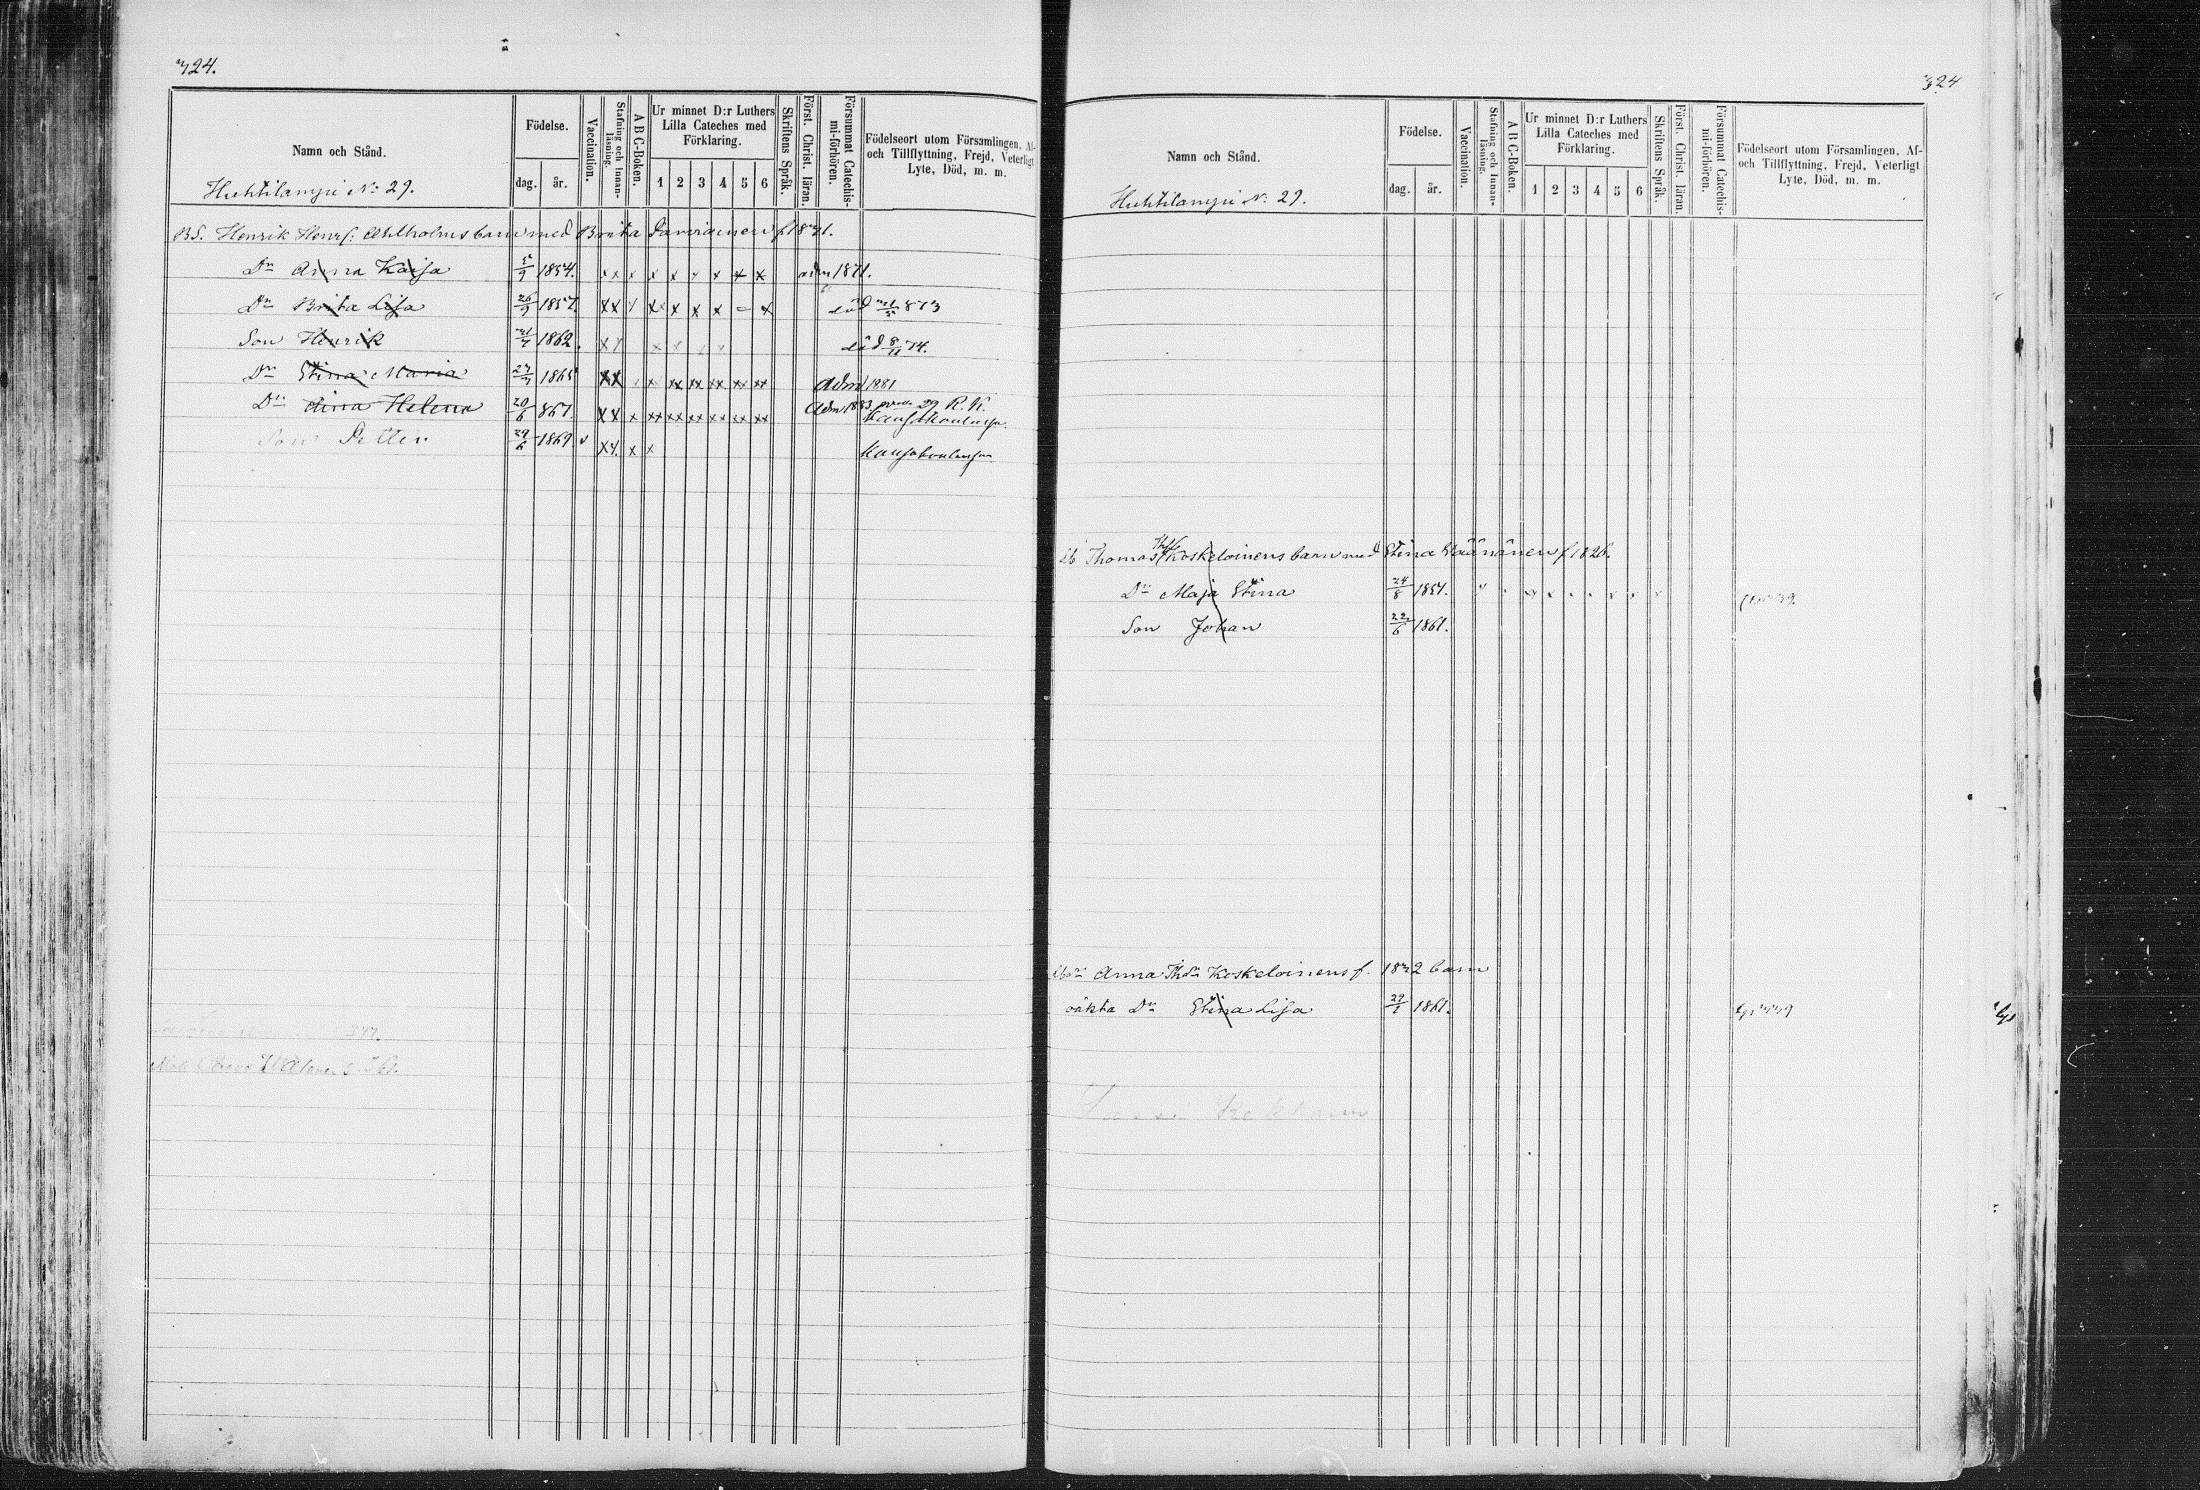 324.
Namn och Stånd.
Födelse.
dag.
år.
Vaccination.
Stafning och Innan-läsning.
A B C-Boken.
Ur minnet D:r Luthers Lilla Cateches med Förklaring.
1 2 3 4 5 6
Skriftens Språk.
Först. Christ. läran.
Försummat Catechis-mi-förhören.
Födelseort utom Församlingen, Af- och Tillflyttning, Frejd, Veterligt Lyte, Död, m. m.
Huhtilampi No 29.
BS. Henrik Henrs: Ahlholms barn med Brita Parviainen f. 1831.
Dr Anna Kaisa 5/9 1854. x x x x x x x x x adm 1871.
Dr Brita Lisa 26/9 1857. x x x x x x x = x död 31/5 873
Son Henrik 21/7 1862. död 8/11 74.
Dr Stina Maria 27/7 1865 Adm 1881
Dr Anna Helena 20/6 867. Adm 1883 29 R. K.
Kansakoulussa.
Son Petter 29/6 1869 Kansakoulussa
347.
324
Namn och Stånd.
Födelse.
dag.
år.
Vaccination.
Stafning och Innan-läsning.
A B C-Boken.
Ur minnet D:r Luthers Lilla Cateches med Förklaring.
1 2 3 4 5 6
Skriftens Språk.
Först. Christ. läran.
Försummat Catechis-mi-förhören.
Födelseort utom Församlingen, Af- och Tillflyttning, Frejd, Veterligt Lyte, Död, m. m.
Huhtilampi No 29.
Thomas Koskeloinens barn med Stina Väänänen f. 1826.
Dr Maja Stina 24/8 1857.
Son Johan 22/6 1861.
Anna Thdr Koskeloinens f. 1832 barn
oäkta Dr Stina Lisa 29/1 1861.